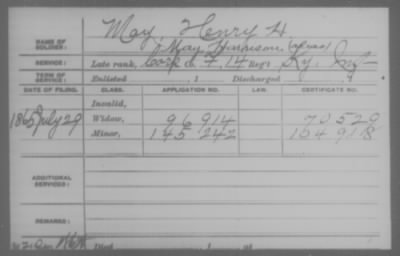 NAME OF SOLDIER: May, Henry H.
May Harrison (alias)
SERVICE: Late rank, Corp Co. F, 14 Reg't Ky. Inf
TERM OF SERVICE: Enlisted , 1 Discharged , 1
DATE OF FILING. CLASS. APPLICATION NO. LAW. CERTIFICATE NO.
Invalid,
1865 July 29 Widow, 96 914 70 529
Minor, 145 242 104 918
ADDITIONAL SERVICES:
REMARKS:
Died , 1 , at